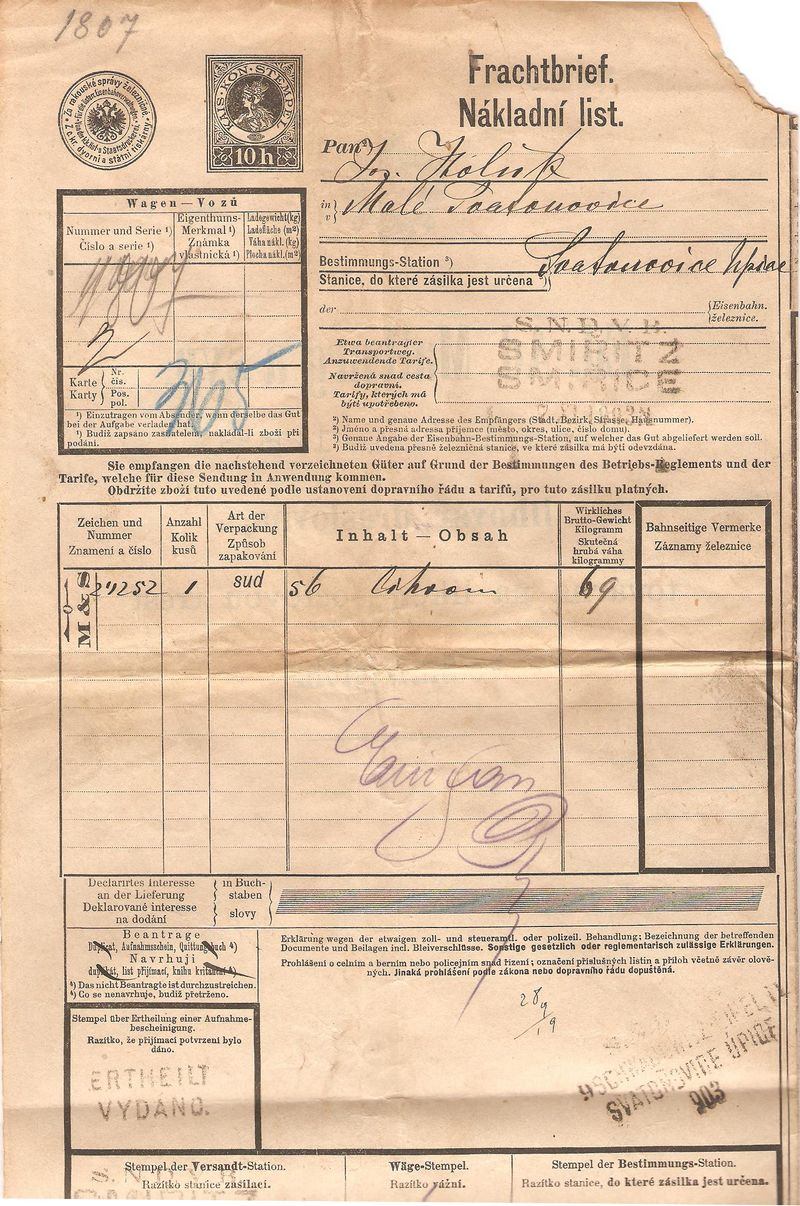 1807
Za rakouské správy železničné.
Z c. kr. dvorní a státní tiskárny.
KAIS·KÖN·STEMPEL
10 h
Frachtbrief.
Nákladní list.
Pan
in
v
Malé Svatonovice
Bestimmungs-Station ³)
Stanice, do které zásilka jest určena ³)
Svatonovice Úpice
der
Eisenbahn.
železnice.
Wagen — Vozů
Nummer und Serie ¹)
Číslo a serie ¹)
Eigenthums-
Merkmal ¹)
Známka
vlastnická ¹)
Ladegewicht (kg)
Ladefläche (m²)
Váha nákl. (kg)
Plocha nákl. (m²)
2
Karte
Karty
Nr.
čís.
Pos.
pol.
¹) Einzutragen vom Absender, wenn derselbe das Gut
bei der Aufgabe verladen hat.
¹) Budiž zapsáno zasílatelem, nakládal-li zboží při
podání.
Etwa beantragter
Transportweg.
Anzuwendende Tarife.
Navržená snad cesta
dopravní.
Tarify, kterých má
býti upotřebeno.
S.N.D.V.B.
SMIŘITZ
SMIŘICE
²) Name und genaue Adresse des Empfängers (Stadt, Bezirk, Strasse, Hausnummer).
²) Jméno a přesná adresa příjemce (město, okres, ulice, číslo domu).
³) Genaue Angabe der Eisenbahn-Bestimmungs-Station, auf welcher das Gut abgeliefert werden soll.
³) Budiž uvedena přesně železniční stanice, ve které zásilka má býti odevzdána.
Sie empfangen die nachstehend verzeichneten Güter auf Grund der Bestimmungen des Betriebs-Reglements und der
Tarife, welche für diese Sendung in Anwendung kommen.
Obdržíte zboží tuto uvedené podle ustanovení dopravního řádu a tarifů, pro tuto zásilku platných.
Zeichen und
Nummer
Znamení a číslo
Anzahl
Kolik
kusů
Art der
Verpackung
Způsob
zapakování
Inhalt — Obsah
Wirkliches
Brutto-Gewicht
Kilogramm
Skutečná
hrubá váha
kilogrammy
Bahnseitige Vermerke
Záznamy železnice
M & S 24252 1 sud 56 69
Declarirtes Interesse
an der Lieferung
Deklarované interesse
na dodání
in Buch-
staben
slovy
Beantrage
Duplicat, Aufnahmsschein, Quittungsbuch ⁴)
Navrhuji
duplikát, list přijímací, knihu kvitanční ⁴)
⁴) Das nicht Beantragte ist durchzustreichen.
⁴) Co se nenavrhuje, budiž přetrženo.
Erklärung wegen der etwaigen zoll- und steueramtl. oder polizeil. Behandlung; Bezeichnung der betreffenden
Documente und Beilagen incl. Bleiverschlüsse. Sonstige gesetzlich oder reglementarisch zulässige Erklärungen.
Prohlášení o celním a berním nebo policejním snad řízení; označení příslušných listin a příloh včetně závěr olově-
ných. Jinaká prohlášení podle zákona nebo dopravního řádu dopuštěná.
Stempel über Ertheilung einer Aufnahms-
bescheinigung.
Razítko, že přijímací potvrzení bylo
dáno.
ERTHEILT
VYDÁNO.
SVATONOVICE ÚPICE
903
Stempel der Versandt-Station.
Razítko stanice zasílací.
Wäge-Stempel.
Razítko vážní.
Stempel der Bestimmungs-Station.
Razítko stanice, do které zásilka jest určena.
S.N.D.V.B.